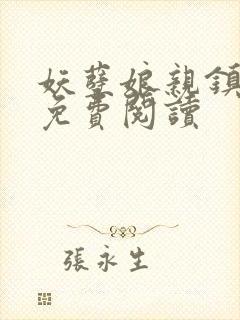 妖孽娘親鎮
免費閱讀
張永生